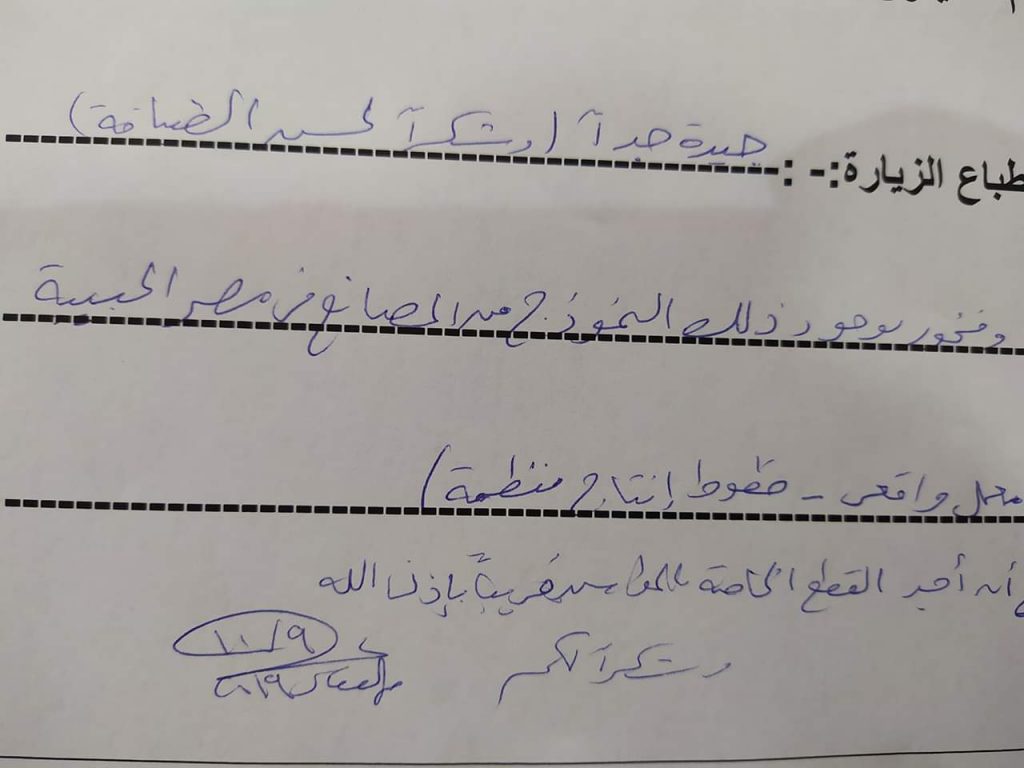 طباع الزيارة:- :جيدة جداً (وشكراً لحسن الضيافة)
وفخور بوجود ذلك النموذج من المصانع في مصر الحبيبة
معمل واقعى - خطوط إنتاج منظمة)
أن أجد القطع الخاصة قريباً بإذن الله
وشكراً لكم
١٠/٩
٢٠١٩